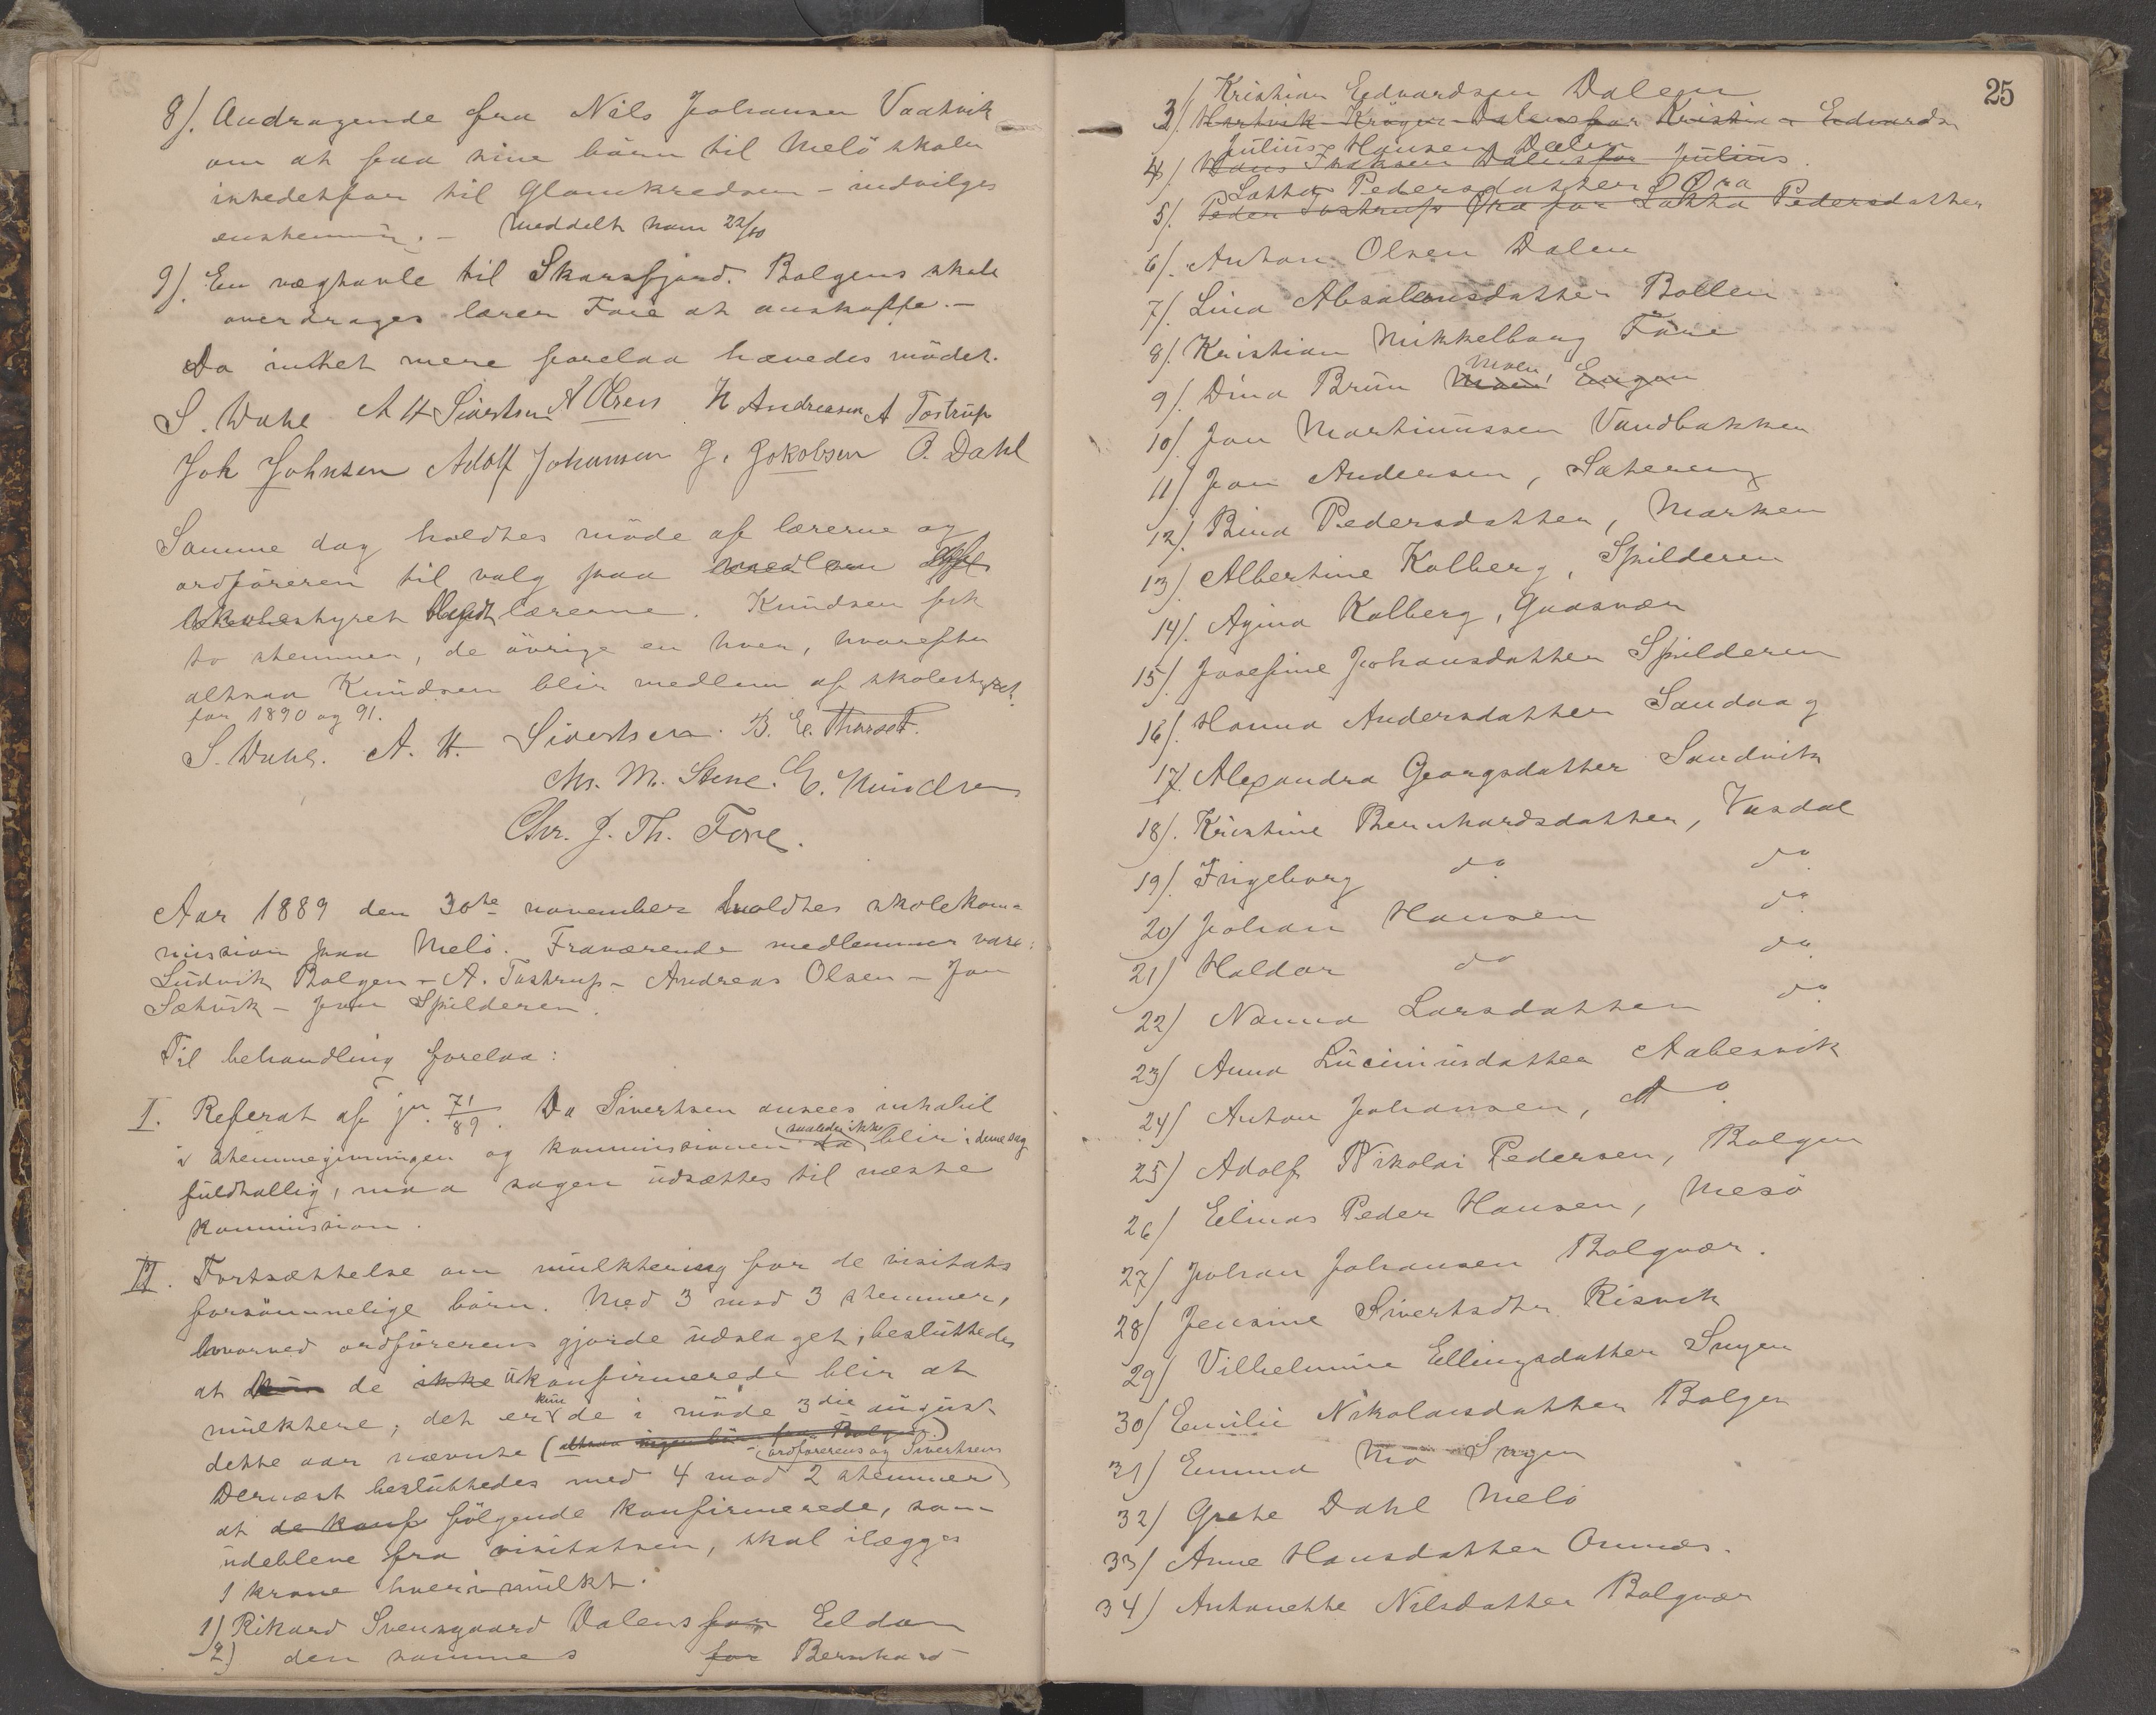 8). Andragende fra Nils Johansen Vaatvik
om at faa sine børn til Melö skole
istedetfor til Glomkredsen – indvilges
enstemmig. – Meddelt ham 22/10
9). En vægtavle til Skarsfjord. Bolgens skole
overdrages lærer Fore at anskaffe. –
Da intet mere forelaa hævedes mödet.
S. Dahl A H Sivertsen A Olsen H Andreasen A Tostrup
Joh Johnsen Adolf Johansen J. Jakobsen O. Dahl
Samme dag holdtes möde af lærerne og
ordföreren til valg paa medlem af
skolestyret blandt lærerne. Knudsen fik
to stemmer, de övrige en hver, hvorefter
altsaa Knudsen blir medlem af skolestyret
for 1890 og 91.
S. Dahl. A. H. Sivertsen. B. E. Tharset.
Chr. M. Stene. E. Knudsen
Chr. J. Th. Fore.
Aar 1889 den 30te november holdtes skolekom=
mission paa Melö. Fraværende medlemmer vare:
Ludvik Bolgen – A. Tostrup – Andreas Olsen – Jon
Sætvik – Spilderen.
Til behandling forelaa:
I. Referat af jn. 71/89. Da Sivertsen ansees inhabil
saaledes ikke
i stemmegivningen og kommissionen da blir i denne sag
fuldtallig, maa sagen udsættes til næste
kommission.
II. Fortsættelse om mulktering for de visitats
forsömmelige börn. Med 3 mod 3 stemmer,
hvorved ordförerens gjorde udslaget, besluttedes
at kun de ikke ukonfirmerede blir at
kun
mulktere, det er de i möde 3die august
dette aar nævnte (altsaa ingen börn fra Bolgen.)
ordförerens og Sivertsens
Dernæst besluttedes med 4 mod 2 stemmer
at de konf følgende konfirmerede, som
udebleve fra visitatsen, skal ilægges
1 krone hver i mulkt.
1) Rikard Svensgaard Dalens for Eldor
2) den sammes for Bernhard
25
Kristian Edvardsen Dalen
3). Hartvik Dalens for Kristian Edvards
Julius Hansen Dalen
4). Hans Isaksen Dalens for Julius.
Lotta Pedersdatter Öra
5). Peder Tostrup Öra for Lotta Pedersdatter
6). Anton Olsen Dalen
7). Lina Absalonsdatter Bollen
8). Kristian Mikkelborg Fore
Moen,
9). Dina Brun Moen Engen
10). Jon Martinussen Vandbakken
11) Jon Andersen, Sætereng
12). Bina Pedersdatter, Marken
13). Albertine Kolberg, Spilderen
14). Agina Kolberg, Gaasvær
15). Josefine Johansdatter Spilderen
16). Hanna Andersdatter Sandaag
17. Alexandra Georgsdatter Sandvik
18). Kristine Bernhardsdatter, Vasdal
19). Ingeborg do. do.
20) Johan Hansen do.
21) Haldor do do.
22) Nanna Larsdatter do.
23) Anna Lucinusdatter Aabesvik
24) Anton Johansen, do.
25) Adolf Nikolai Pedersen, Bolgen
26) Elinas Peder Hansen, Mesö
27) Johan Johansen Bolgvær.
28) Jensine Sivertsdtr Risvik
29) Vilhelmine Ellingsdatter Sngen
30) Emilie Nikolaisdatter Bolgen
31) Emma Mo Sngen
32) Grete Dahl Melö
33) Anne Hansdatter Ornæs.
34) Antonette Nilsdatter Bolgvær